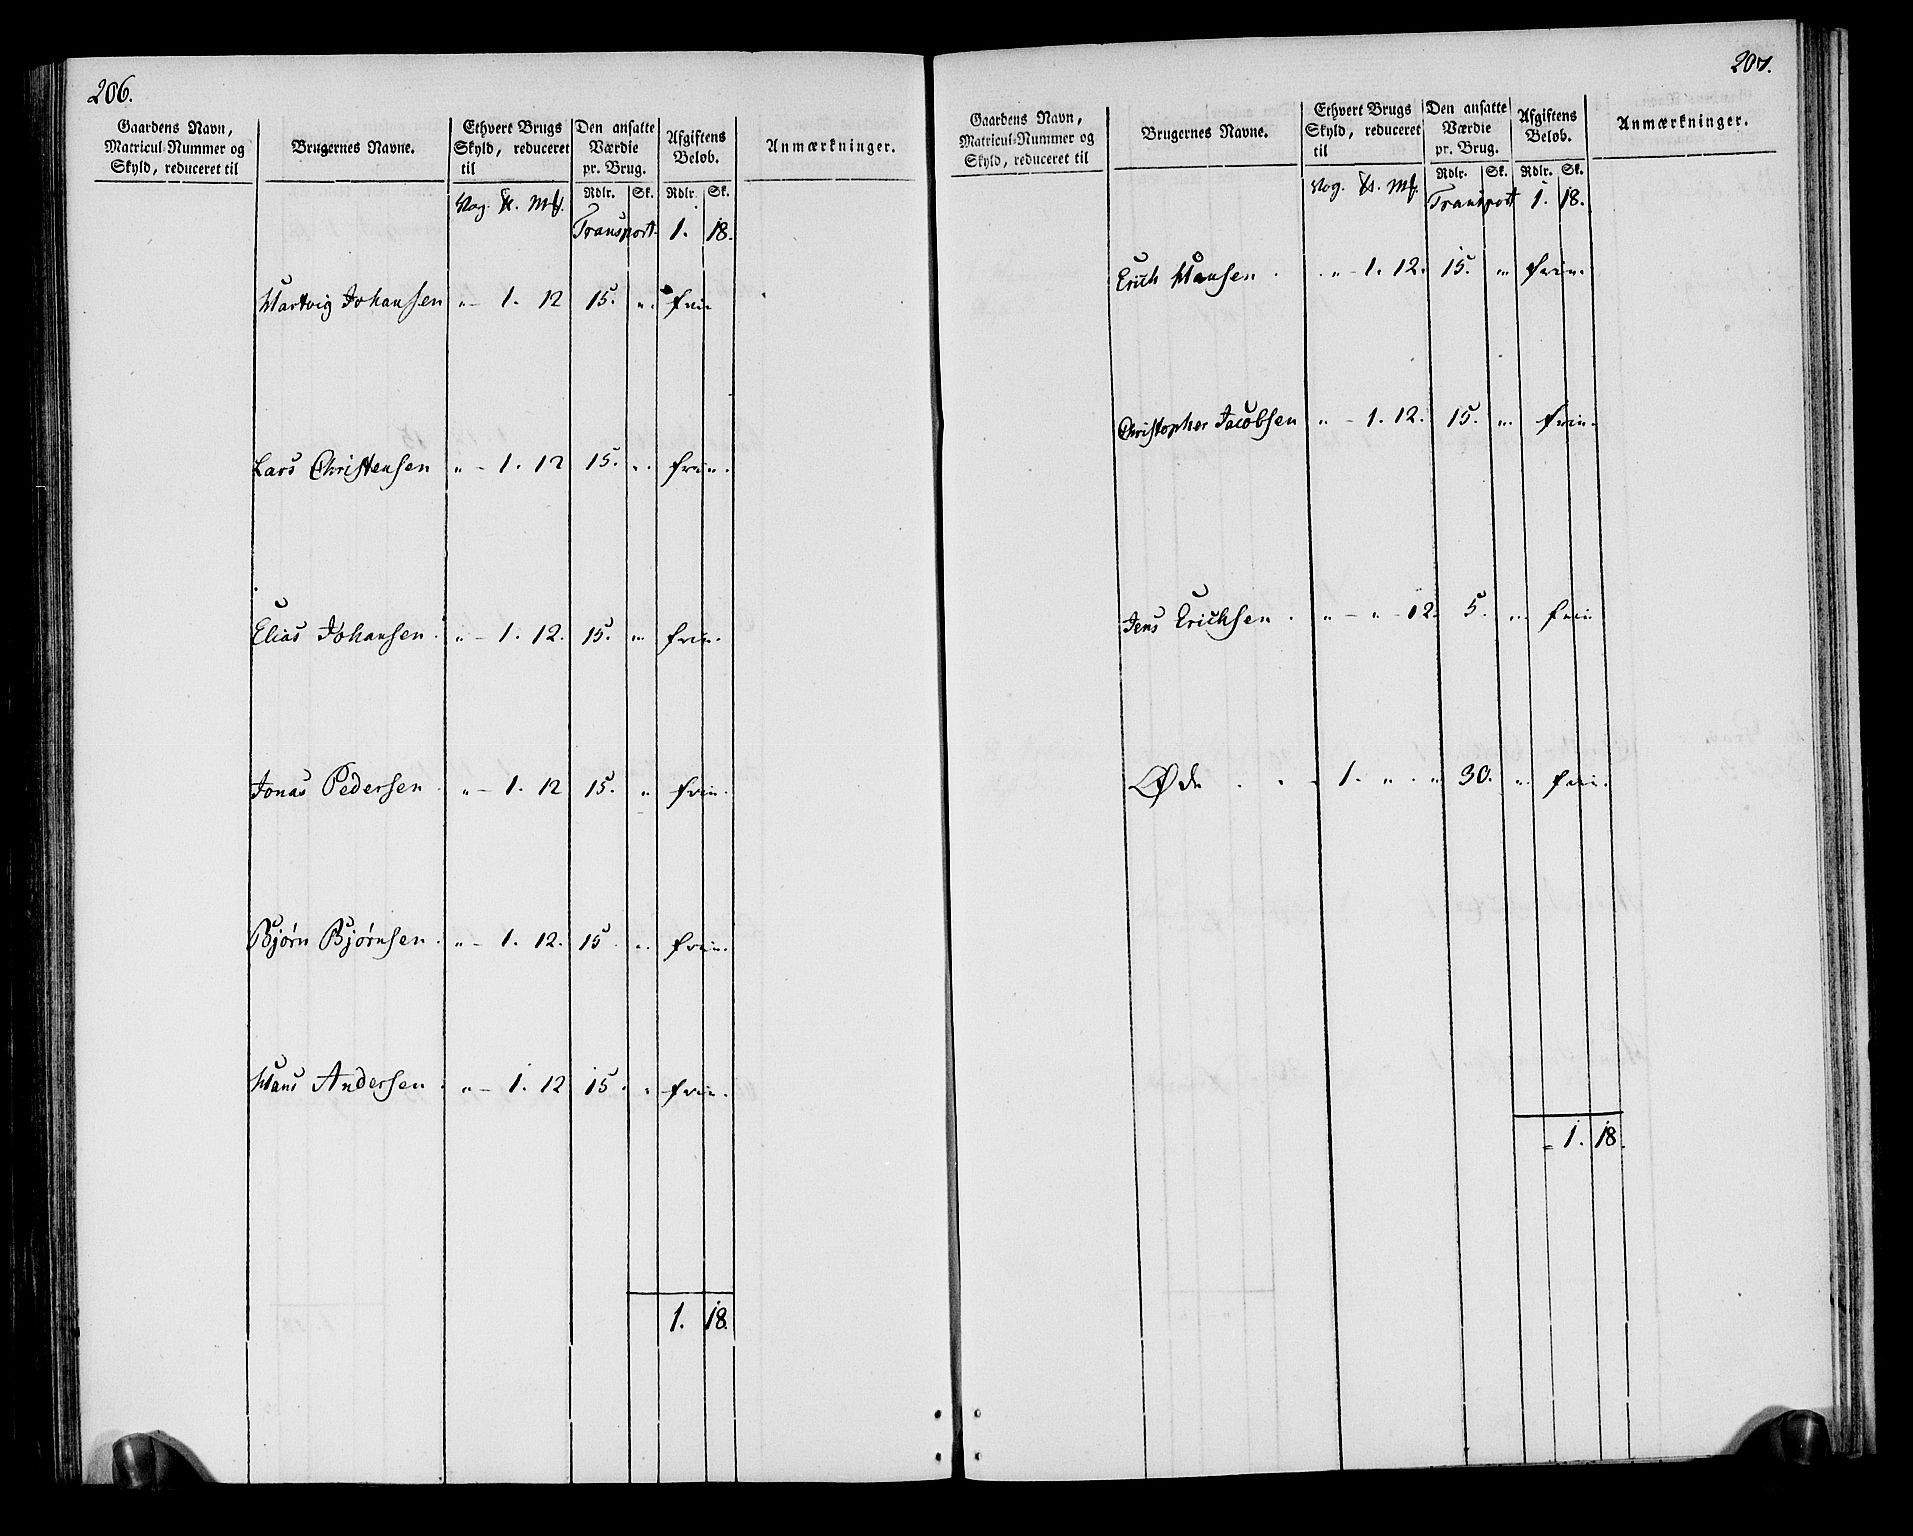 206.
Gaardens Navn, Matricul-Nummer og Skyld, reduceret til
Brugernes Navne.
Ethvert Brugs Skyld, reduceret til
Den ansatte Værdie pr. Brug.
Afgiftens Beløb.
Anmærkninger.
Rdlr. Sk. Rdlr. Sk.
Vog. Mk.
Transport. 1. 18.
Hartvig Johansen „ – 1. 12 15. „. frie
Lars Christensen „ – 1. 12 15. „. frie.
Elias Johansen. „ – 1. 12. 15. „ frie.
Jonas Pedersen. „ – 1. 12 15. „ frie.
Bjørn Bjørnsen. „ – 1. 12. 15. „. frie.
Hans Andersen. „ – 1. 12 15. „ frie.
1. 18.
207.
Gaardens Navn, Matricul-Nummer og Skyld, reduceret til
Brugernes Navne.
Ethvert Brugs Skyld, reduceret til
Den ansatte Værdie pr. Brug.
Afgiftens Beløb.
Anmærkninger.
Rdlr. Sk. Rdlr. Sk.
Vog. Mk.
Transport 1. 18.
Erich Hansen . . „ – 1. 12. 15. „ frie.
Christopher Jacobsen „ – 1. 12. 15. „. frie.
Jens Erichsen . „ – „ – 12. 5. „. frie
Øde . . – 1. „ . „ 30. „. frie.
1. 18.